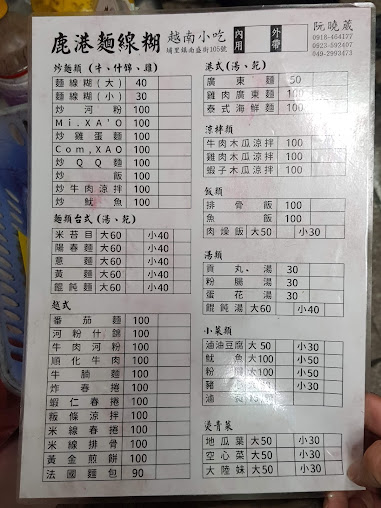 鹿港麵線糊 越南小吃 內用 外帶 阮曉葳
埔里鎮南盛街105號
0918-464177
0923-592407
049-2993473
炒麵類(牛、什錦、雞)
麵線糊(大) 40
麵線糊(小) 30
炒河粉 100
Mi.XA'O 100
炒雞蛋麵 100
Com,XAO 100
炒QQ麵 100
炒飯 100
炒牛肉涼拌 100
炒魷魚 100
麵類台式(湯、乾)
米苔目 大60 小40
陽春麵 大60 小40
意麵 大60 小40
黃麵 大60 小40
餛飩麵 大60 小40
越式
番茄麵 100
河粉什錦 100
牛肉河粉 100
順化牛肉 100
牛腩麵 100
炸春捲 100
蝦仁春捲 100
粄條涼拌 100
米線春捲 100
米線排骨 100
黃金煎餅 100
法國麵包 90
港式(湯、乾)
廣東麵 50
雞肉廣東麵 100
泰式海鮮麵 100
涼拌類
牛肉木瓜涼拌 100
雞肉木瓜涼拌 100
蝦子木瓜涼拌 100
飯類
排骨飯 100
魚飯 100
肉燥飯 大50 小30
湯類
貢丸湯 30
粉腸湯 30
蛋花湯 30
餛飩湯 大60 小40
小菜類
油油豆腐 大50 小30
魷魚 大100 小50
粉 大100 小50
豬 大50
滷
燙青菜
地瓜葉 大50 小30
空心菜 大50 小30
大陸妹 大50 小30